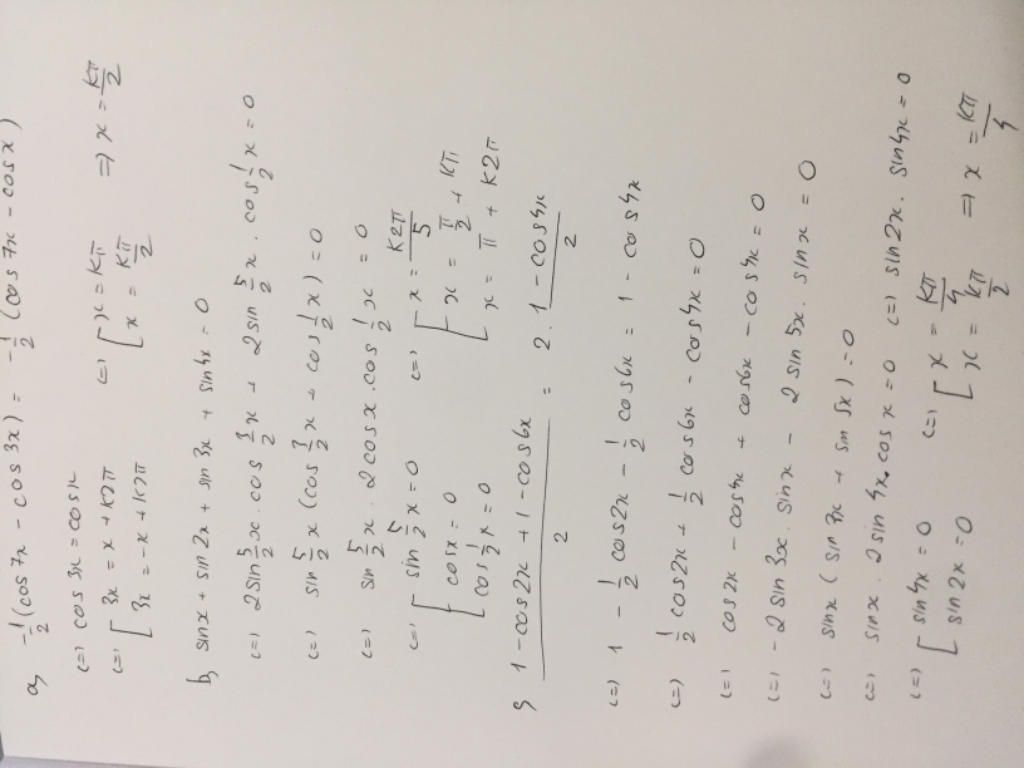 a, -1/2 (cos 7x - cos 3x) = -1/2 (cos 7x - cos x)
(=) cos 3x = cos x
(=) [ 3x = x + k2π (=) [ x = kπ => x = kπ/2
3x = -x + k2π x = kπ/2
b, sinx + sin 2x + sin 3x + sin 4x = 0
(=) 2 sin 5/2 x . cos 3/2 x + 2 sin 5/2 x . cos 1/2 x = 0
(=) sin 5/2 x (cos 3/2 x + cos 1/2 x) = 0
(=) sin 5/2 x . 2 cos x . cos 1/2 x = 0
(=) [ sin 5/2 x = 0 (=) [ x = k2π/5
cos x = 0 x = π/2 + kπ
cos 1/2 x = 0 x = π + k2π
c, (1 - cos 2x + 1 - cos 6x)/2 = 2 . (1 - cos 4x)/2
(=) 1 - 1/2 cos 2x - 1/2 cos 6x = 1 - cos 4x
(=) 1/2 cos 2x + 1/2 cos 6x - cos 4x = 0
(=) cos 2x - cos 4x + cos 6x - cos 4x = 0
(=) -2 sin 3x . sin x - 2 sin 5x . sin x = 0
(=) sin x ( sin 3x + sin 5x ) = 0
(=) sin x . 2 sin 4x . cos x = 0 (=) sin 2x . sin 4x = 0
(=) [ sin 4x = 0 (=) [ x = kπ/4 => x = kπ/4
sin 2x = 0 x = kπ/2